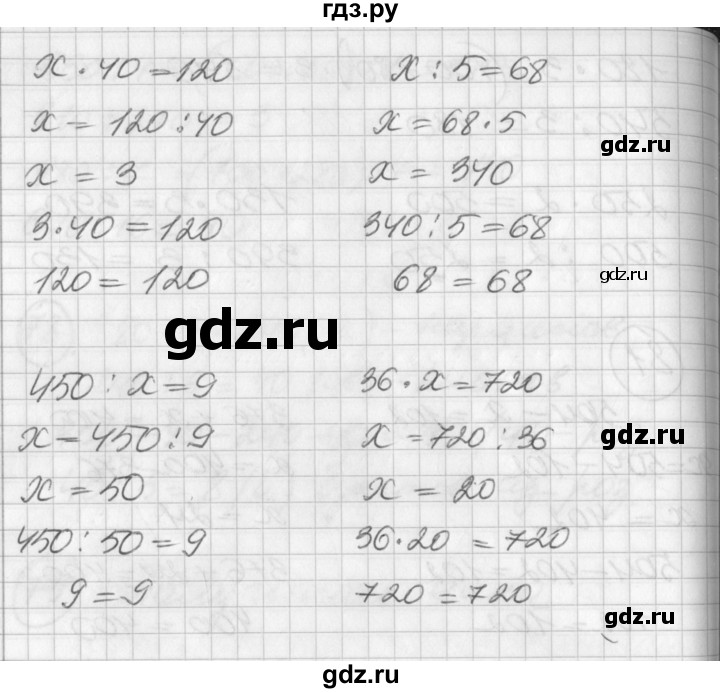 гдз.ру
x · 40 = 120
x = 120 : 40
x = 3
3 · 40 = 120
120 = 120
x : 5 = 68
x = 68 · 5
gdz.ru
x = 340
340 : 5 = 68
68 = 68
gdz.ru
gdz.ru
450 : x = 9
x = 450 : 9
x = 50
450 : 50 = 9
9 = 9
36 · x = 720
x = 720 : 36
gdz.ru
x = 20
36 · 20 = 720
720 = 720
gdz.ru
gdz.ru